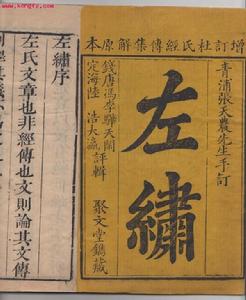 增訂杜氏經傳集解原本
青浦張天農先生手訂
左繡
錢唐馮李驊天閑
定海陸浩大瀛評輯
聚文堂鐫藏
左繡序
左氏文章也非經傳也文則論其文傳